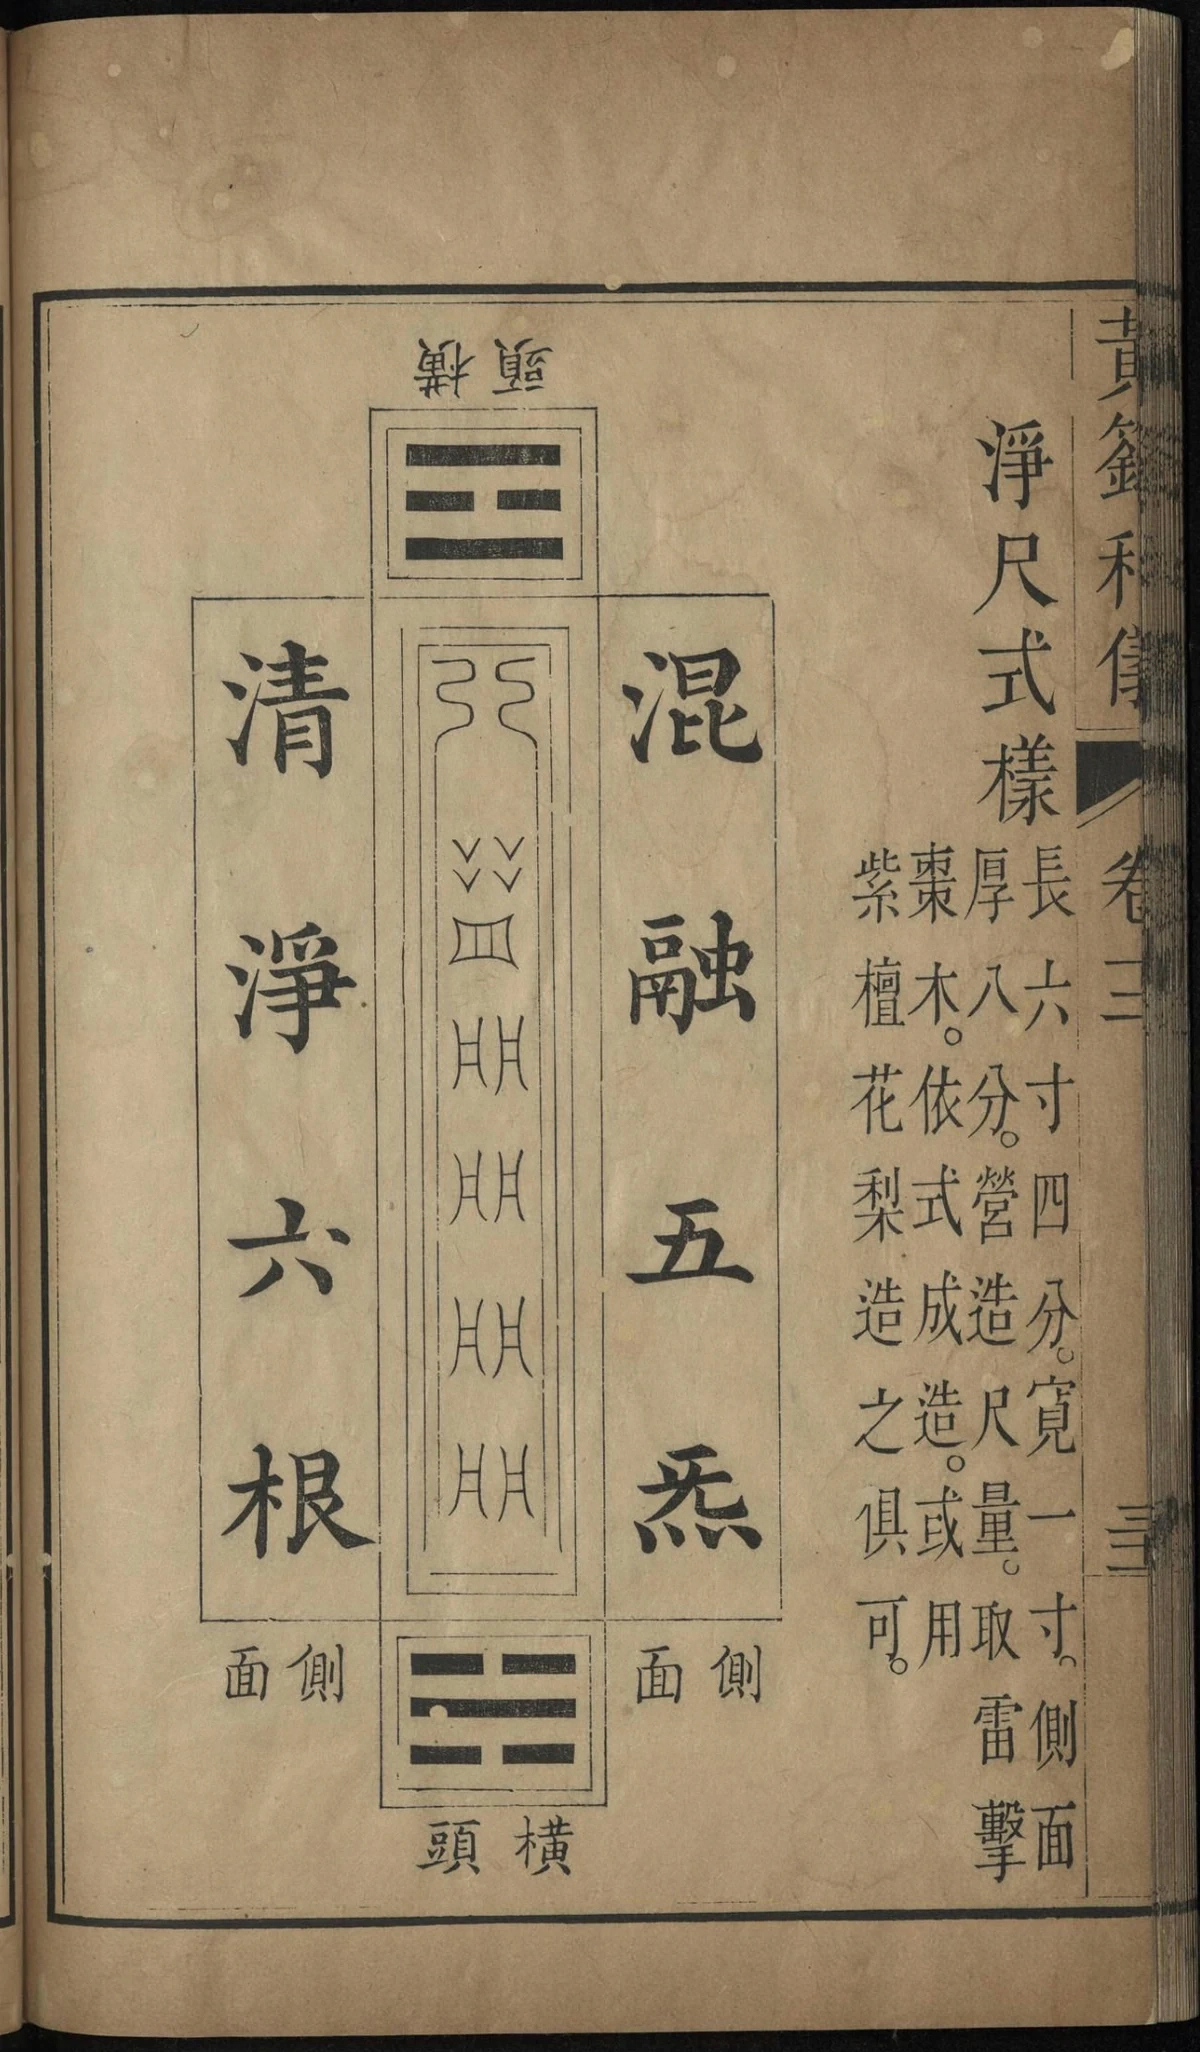 卷三
淨尺式樣
長六寸四分。寬一寸。側面
厚八分。營造尺量。取雷擊
棗木。依式成造。或用
紫檀花梨造之俱可。
橫頭
混融五炁
側面
清淨六根
側面
橫頭